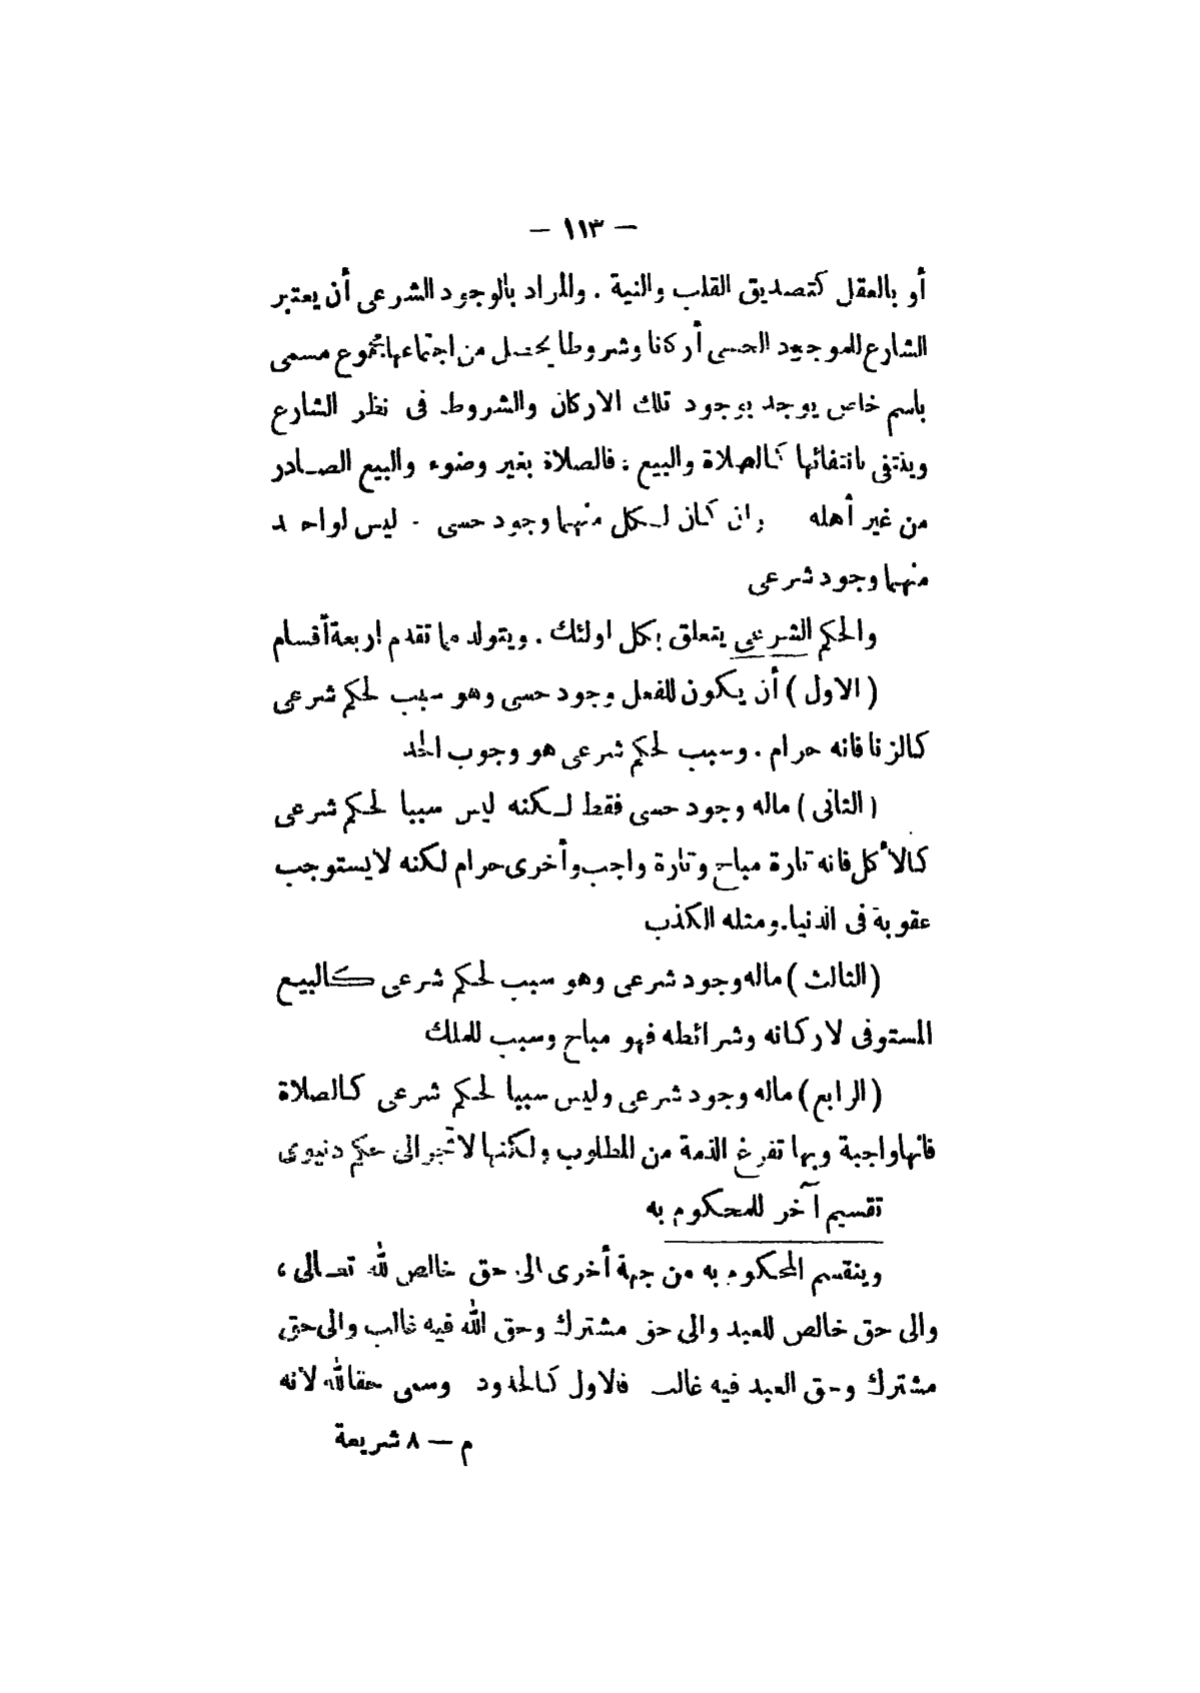 — ١١٣ —
أو بالعقل كتصديق القلب والنية . والمراد بالوجود الشرعى أن يعتبر
الشارع للموجود الحسى أركانا وشروطا يحصل من اجتماعها مجموع مسمى
باسم خاص يوجد بوجود تلك الاركان والشروط فى نظر الشارع
وينتفى بانتفائها كالصلاة والبيع : فالصلاة بغير وضوء والبيع الصادر
من غير أهله وان كان لكل منهما وجود حسى - ليس لواحد
منهما وجود شرعى
والحكم الشرعى يتعلق بكل اولئك . ويتولد مما تقدم اربعة أقسام
( الاول ) أن يكون للفعل وجود حسى وهو سبب لحكم شرعى
كالزنا فانه حرام . وسبب لحكم شرعى هو وجوب الحد
( الثانى ) ماله وجود حسى فقط لكنه ليس سببا لحكم شرعى
كالأكل فانه تارة مباح وتارة واجب وأخرى حرام لكنه لا يستوجب
عقوبة فى الدنيا . ومثله الكذب
( الثالث ) ماله وجود شرعى وهو سبب لحكم شرعى كالبيع
المستوفى لاركانه وشرائطه فهو مباح وسبب للملك
( الرابع ) ماله وجود شرعى وليس سببا لحكم شرعى كالصلاة
فانها واجبة وبها تفرغ الذمة من المطلوب ولكنها لا تجر الى حكم دنيوى
تقسيم آخر للمحكوم به
وينقسم المحكوم به من جهة أخرى الى حق خالص لله تعالى ،
والى حق خالص للعبد والى حق مشترك وحق الله فيه غالب والى حق
مشترك وحق العبد فيه غالب فالاول كالحدود وسمى حقا لله لانه
م — ٨ شريعة